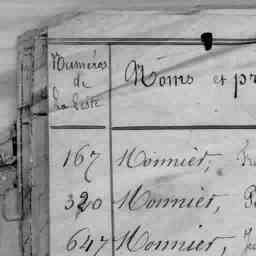 Numéros
de
la Liste
Noms et pr
167 Monnier,
320 Monnier,
647 Monnier,